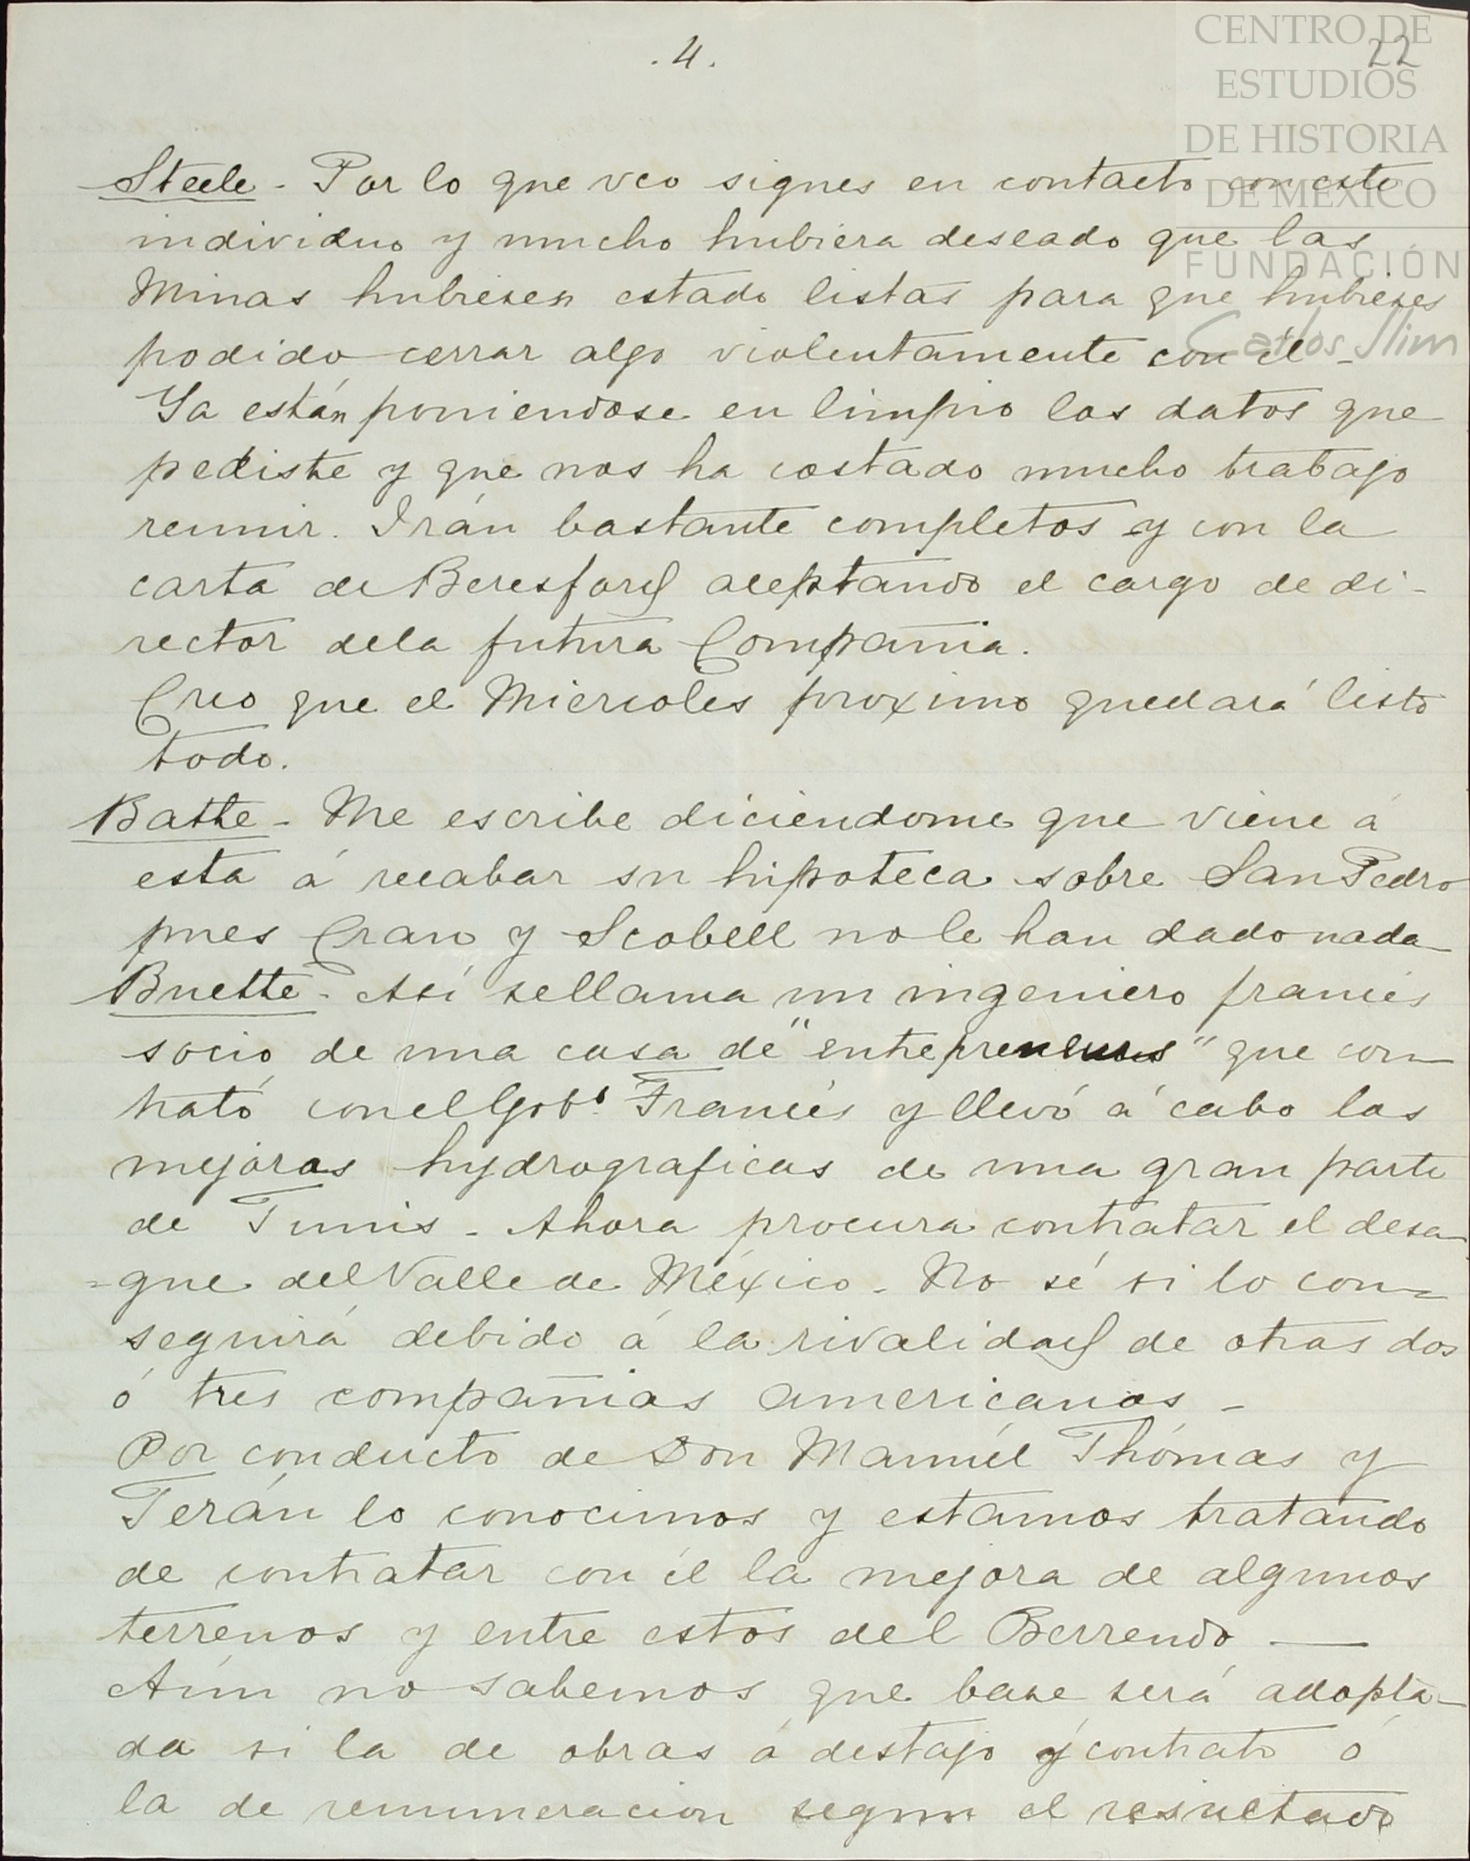 .4.
22
CENTRO DE
ESTUDIOS
DE HISTORIA
DE MEXICO
FUNDACIÓN
Carlos Slim
Steele - Por lo que veo sigues en contacto con este
individuo y mucho hubiera deseado que las
Minas hubiesen estado listas para que hubieses
podido cerrar algo violentamente con él -
Ya están poniendose en limpio los datos que
pediste y que nos ha costado mucho trabajo
reunir. Irán bastante completos y con la
carta de Beresford aceptando el cargo de di-
rector dela futura Compañia.
Creo que el Miercoles proximo quedará listo
todo.
Bathe - Me escribe diciendome que viene á
esta á recabar su hipoteca sobre San Pedro
pues Cran y Scobell no le han dado nada
Buette - Así se llama un ingeniero francés
socio de una casa de "entrepreneurs" que con-
trató con el Gobo. Francés y llevó á cabo las
mejoras hydrograficas de una gran parte
de Tunis - Ahora procura contratar el desa-
=gue del Valle de México - No sé si lo con=
seguirá debido á la rivalidad de otras dos
ó tres compañias americanas -
Por conducto de Don Manuél Thómas y
Terán lo conocimos y estamos tratando
de contratar con él la mejora de algunos
terrenos y entre estos del Berrendo —
Aún no sabemos que base será adopta-
da si la de obras á destajo y contrato ó
la de remuneracion segun el resultado